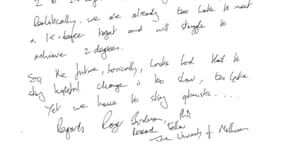 Realistically, we are already too late to meet
a 1.5-degree target and will struggle to
achieve 2 degrees.
So, the future, basically, looks bad that to
stay hopeful change is too slow, too late.
Yet we have to stay optimistic....
Regards Roger PhD,
Research Fellow
The University of Melbourne